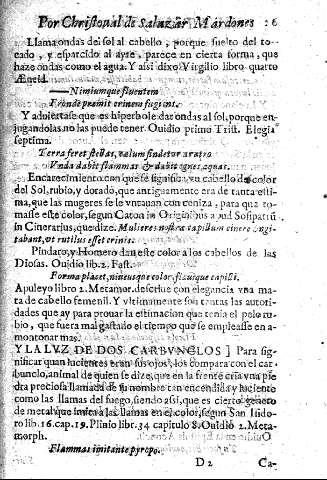 Por Christoual de Salazar Mardones. 26
Llama ondas del sol al cabello, porque suelto del to-
cado, y esparcido al ayre, parece en cierta forma, que
haze ondas como el agua. Y assi dixo Virgilio libro quarto
Æneid.
Nimiumque fluentem
Fronde præmit crinem fugient.
Y aduiertase que es hiperbole dar ondas al sol, porque en-
jugandolas no las puede tener. Ouidio primo Trist. Elegia
septima.
Terra feret stellas, cælum findetur aratro
Vnda dabit flammas & dabit ignes, aquas.
Encarecimiento con que se significa vn cabello de color
del Sol, rubio, y dorado, que antiguamente era de tanta esti-
ma, que las mugeres se le vntauan con ceniza, para que to-
masse este color, segun Caton in Originibus apud Sosipatrū
in Cinerarius, que dize. Mulieres nostra capillum cinere ungi-
tabant, ut rutilus esset crinis.
Pindaro, y Homero dan este color a los cabellos de las
Diosas. Ouidio lib. 2. Fast.
Forma placet, niueusque color, flauique capilli.
Apuleyo libro 2. Metamor. descriue con elegancia vna ma-
ta de cabello femenil. Y vltimamente son tantas las autori-
dades que ay para prouar la estimacion que tenia el pelo ru-
bio, que fuera mal gastado el tiempo que se empleasse en a-
montonar mas.
Y LA LVZ DE DOS CARBVNCLOS ] Para sig-
nificar quan lucientes eran sus ojos, los compara con el car-
bunclo, animal de quien se dize, que en la frente cria vna pie-
dra preciosa llamada de su nombre tan encendida y luciente
como las llamas del fuego, siendo assi, que es cierto genero
de metal que imita a las llamas en el color, segun San Isido-
ro lib. 16. cap. 19. Plinio libr. 34 capitulo 8. Ouidio 2. Meta-
morph.
Flammas imitante pyropo.
D 2 Ca-